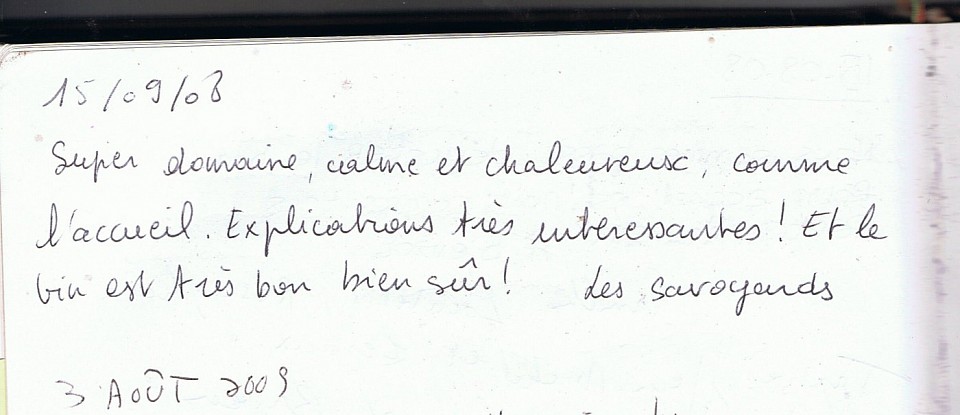 15/09/08
Super domaine, calme et chaleureux, comme
l'accueil. Explications très intéressantes ! Et le
vin est très bon bien sûr ! Les savoyards
3 AOÛT 2009